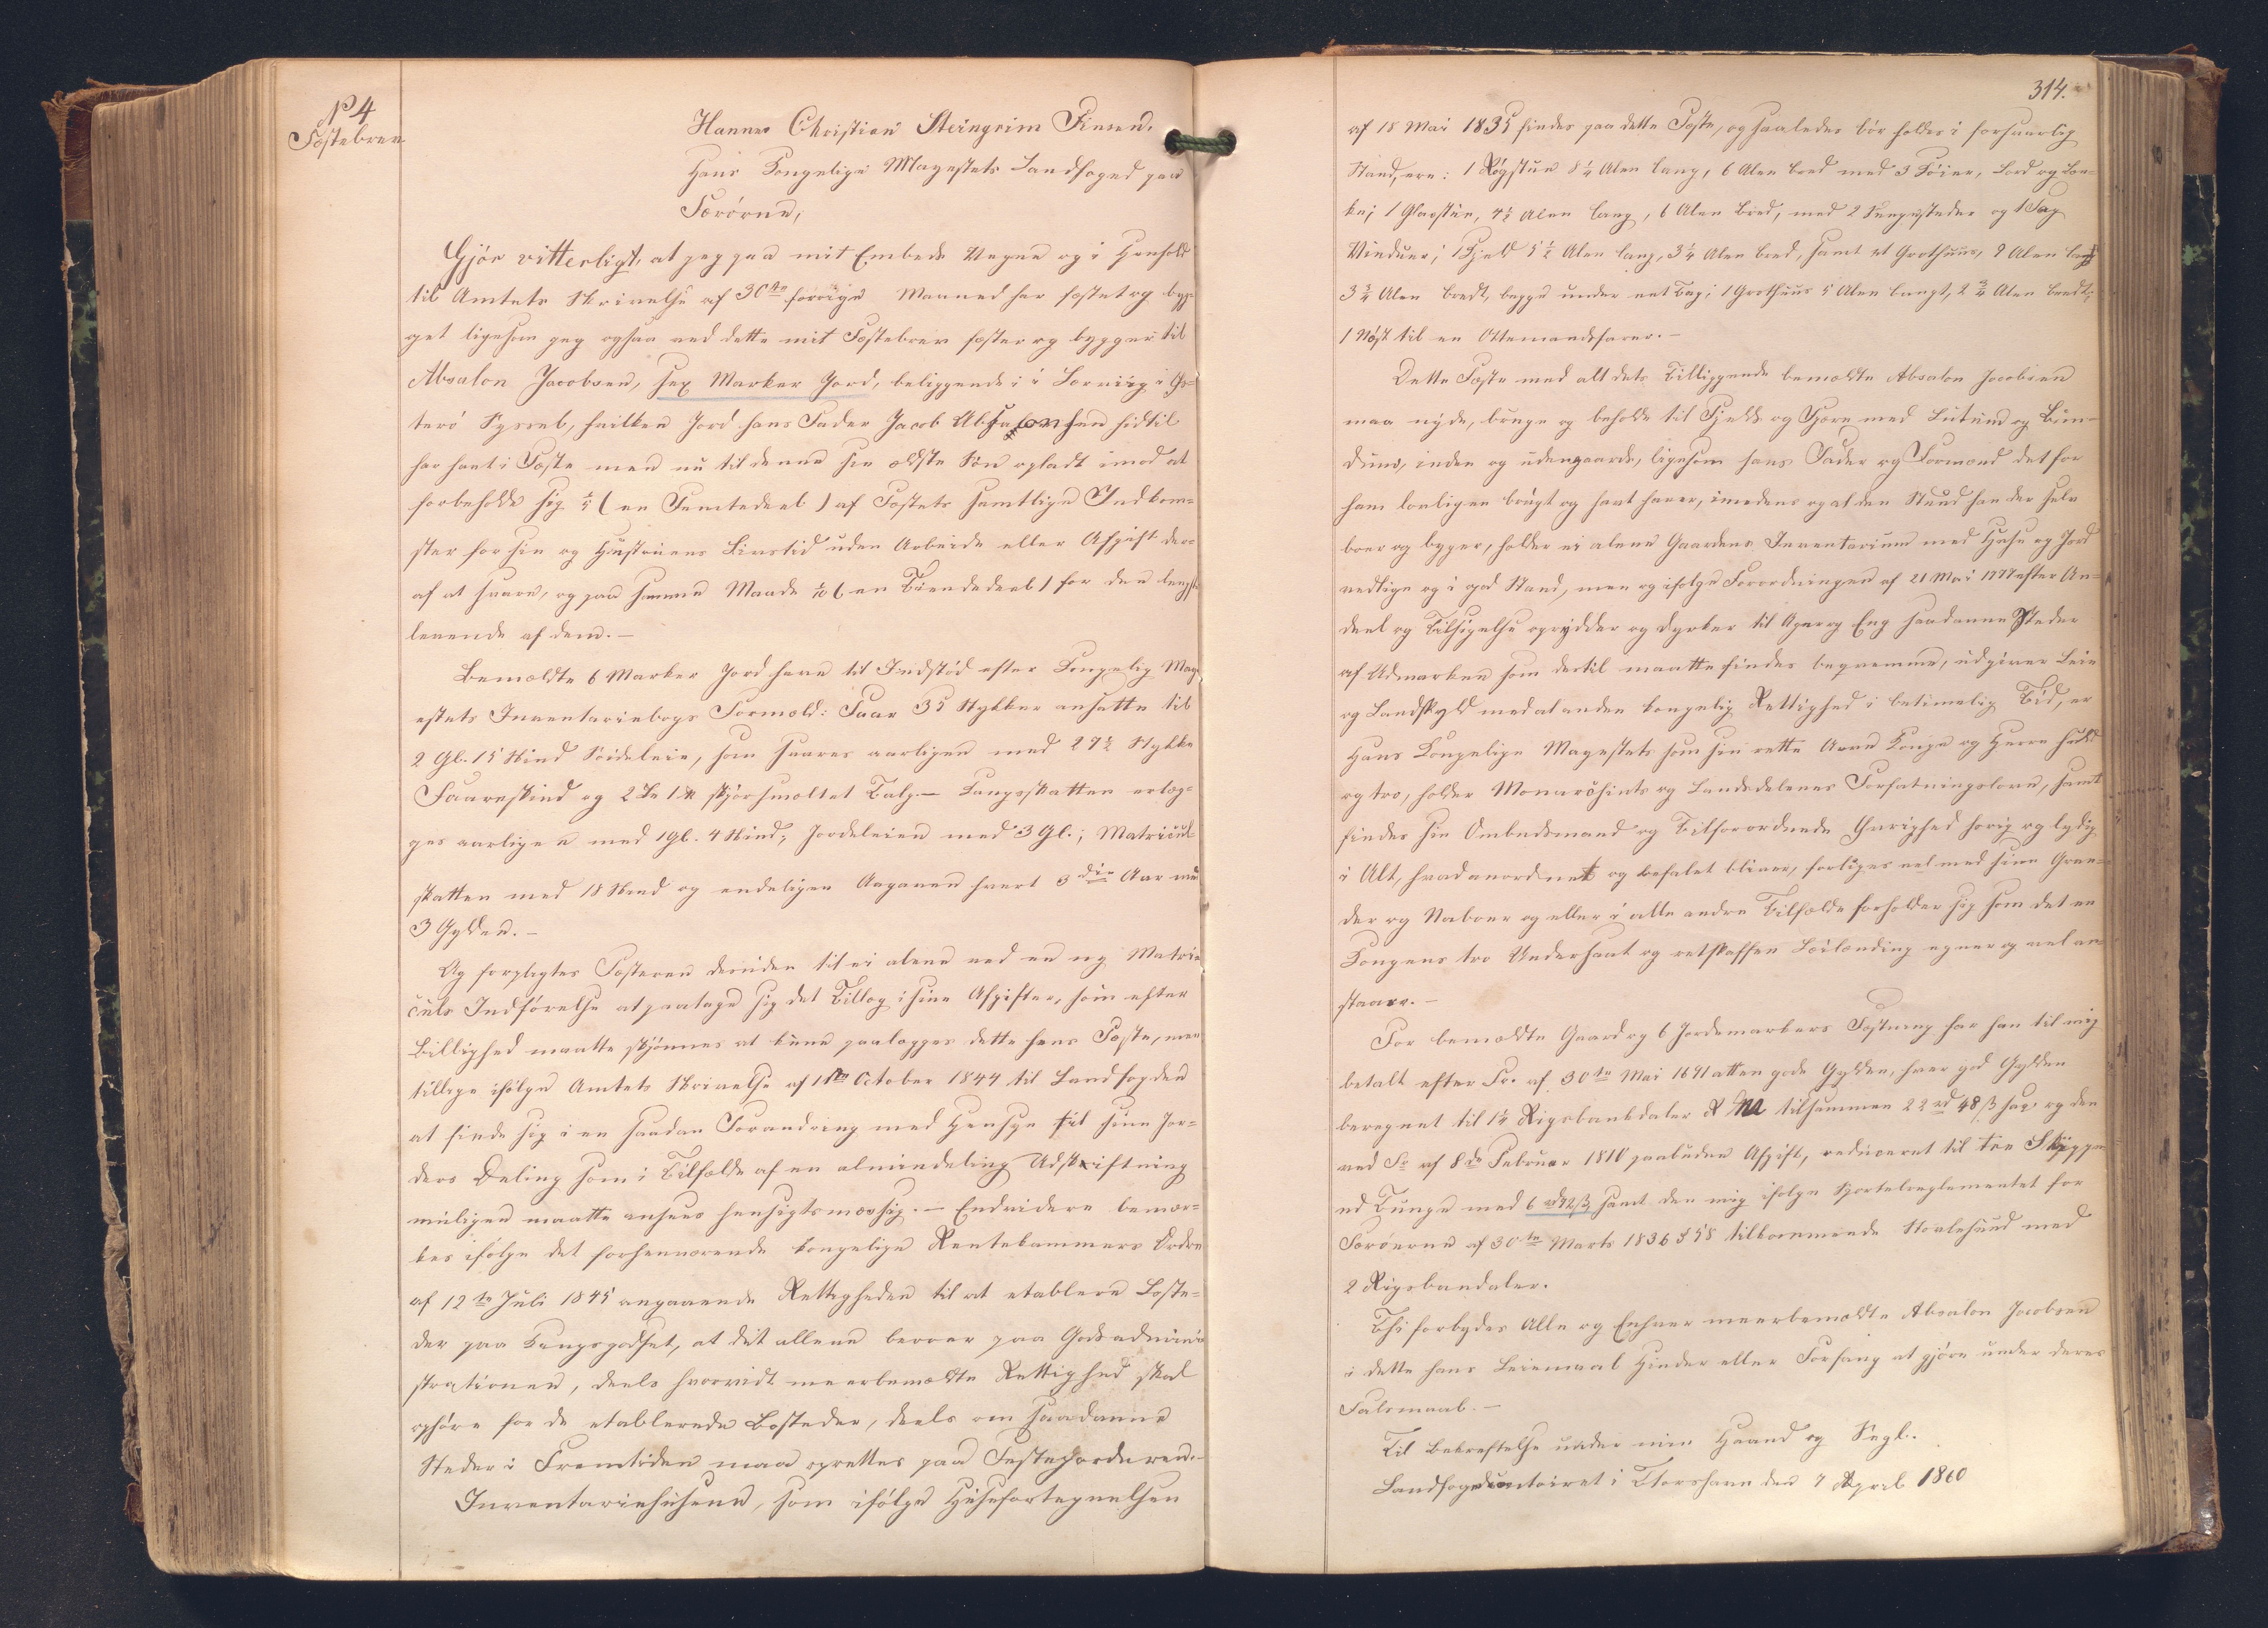 № 4
Fæstebrev
Hannes Christian Steingrim Finsen,
Hans Kongelige Mayestets Landfoged paa
Færöerne,
Gjör vitterligt, at jeg paa mit Embeds Vegne og i Henhold
til Amtets Skrivelse af 30te forrige Maaned har fæstet og byg-
get ligesom jeg ogsaa ved dette mit Fæstebrev fæster og bygger til
Absalon Jacobsen, sex Marker Jord, beliggende i i Lorviig i Ös-
terö Syssel, hvilken Jord hans Fader Jacob Absalonsen hidtil
har havt i Fæste men nu til denne sin ældste Sön opladt imod at
forbeholde sig 1/5 (en Femtedeel) af Fæstets samtlige Indkom-
ster for sin og Hustruens Livstid uden Arbeide eller Afgift der-
af at svare, og paa samme Maade 1/10 (en Tiendedeel) for den længst-
levende af dem.-
Bemældte 6 Marker Jord have til Indstöd efter Kongelig May-
estets Inventariebogs Formeld: Faar 35 Stykker ansatte til
2 Gl. 15 Skind Söideleie, som svares aarligen med 27½ Stykke
Faareskind og 2 Vo 1 # skjörsmeltet Talg.- Kongsskatten erlæg-
ges aarligen med 1 Gl. 4 Skind; Jordeleien med 3 Gl.; Matricul-
skatten med 18 Skind og endeligen Aagaven hvert 3die Aar med
3 Gylden.-
Og forpligtes Fæsteren desuden til ei alene ved en ny Matri-
culs Indförelse at paatage sig det Tillæg i sine Afgifter, som efter
Billighed maatte skjönnes at kune paalægges dette hans Fæste, men
tillige ifölge Amtets Skrivelse af 1ste October 1844 til Landfogden
at finde sig i en saadan Forandring med Hensyn til sine Jor-
ders Deling som i Tilfælde af en almindelig Udskiftning
muligen maatte ansees hensigtsmæssig.- Endvidere bemær-
kes ifölge det forhenværende kongelige Rentekammers Ordre
af 12te Juli 1845 angaaende Rettigheden til at etablere Boste-
der paa Kongsgodset, at det allene beroer paa Godsadmini-
strationen, deels hvorvidt meerbemældte Rettighed skal
ophöre for de etablerede Bosteder, deels om saadanne
Steder i Fremtiden maa oprettes paa Fæstejorderne.-
Inventariehusene, som ifölge Huusfortegnelsen
314.
af 18 Mai 1835 findes paa dette Fæste, og saaledes bör holdes i forsvarlig
Stand, ere: 1 Rögstue 8¼ Alen lang, 6 Alen bred med 3 Söier, Bord og Bæn-
ke; 1 Glasstue, 4½ Alen lang, 6 Alen bred, med 2 Sengesteder og 1 Fag
Vinduer; 1 Hjeld 5½ Alen lang, 3¼ Alen bred, samt et Grothuus, 9 Alen langt
3¾ Alen bredt, begge under eet Tag; 1 Grothuus 5 Alen langt, 2¾ Alen bredt;
1 Nöst til en Ottemandsfarer.-
Dette Fæste med alt dets Tilliggende bemældte Absalon Jacobsen
maa nyde, bruge og beholde til Fjelds og Fjære, med Lutum og Lun-
dum, inden og udengaards, ligesom hans Fader og Formænd det for
ham lovligen brugt og havt haver, imedens og al den Stund han der selv
boer og byger, holder ei alene Gaardens Inventarium med Huse og Jord
vedlige og i god Stand, men og ifolge Forordningen af 21 Mai 1777 efter An-
deel og Tilsigelse oprydder og dyrker til Ager og Eng saadanne Steder
af Udmarken som dertil maatte findes beqvemme, udgiver Leie
og Landskyld med al anden kongelig Rettighed i betimelig Tid, er
Hans Kongelige Mayestets som sin rette Arve Konge og Herre huld
og tro, holder Monarchiets og Landsdelenes Forfatningslove, samt
findes sin Ombudsmand og Tilforordnede Övrighed hörig og lydig
i Alt, hvad anordnet og befalet bliver, forliges vel med sine Gran-
der og Naboer og eller i alle andre Tilfælde forholder sig som det en
Kongens tro Undersaat og retskaffen Leilænding egner og vel an-
staaer.-
For bemældte Gaard og 6 Jordemarkers Fæstning har han til mig
betalt efter Fr. af 30te Mai 1691 atten gode Gylden, hver god Gylden
beregnet til 1¼ Rigsbankdaler tilsammen 22 rd 48 ß samt og den
ved Fr af 8de Februar 1810 paabudne Afgift, reduceret til tre Skjæppe
ud Tunge med 6 rd 72 ß samt den mig ifolge Sportelreglementet for
Færöerne af 30te Marts 1836 § 58 tilkommende Stolesund med
2 Rigsbandaler.
Thi forbydes Alle og Enhver meerbemældte Absalon Jacobsen
i dette hans Leiemaal Hinder eller Forfang at gjöre under deres
Falsmaal.-
Til Bekræftelse under min Haand og Segl.
Landfogedcontoiret i Thorshavn den 7 April 1860